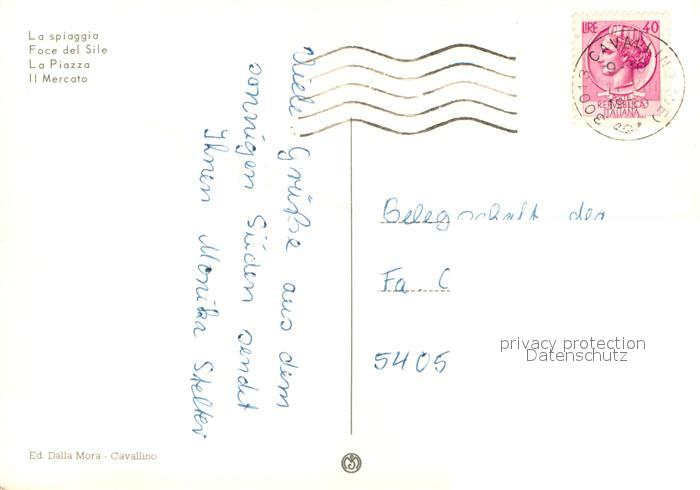 La spiaggia
Foce del Sile
La Piazza
Il Mercato
Viele Grüße aus dem
sonnigen Süden sendet
Ihnen Monika Stelter
LIRE 40
REPUBBLICA
ITALIANA
Belegschaft der
Fa. C
5405
privacy protection
Datenschutz
Ed. Dalla Mora - Cavallino